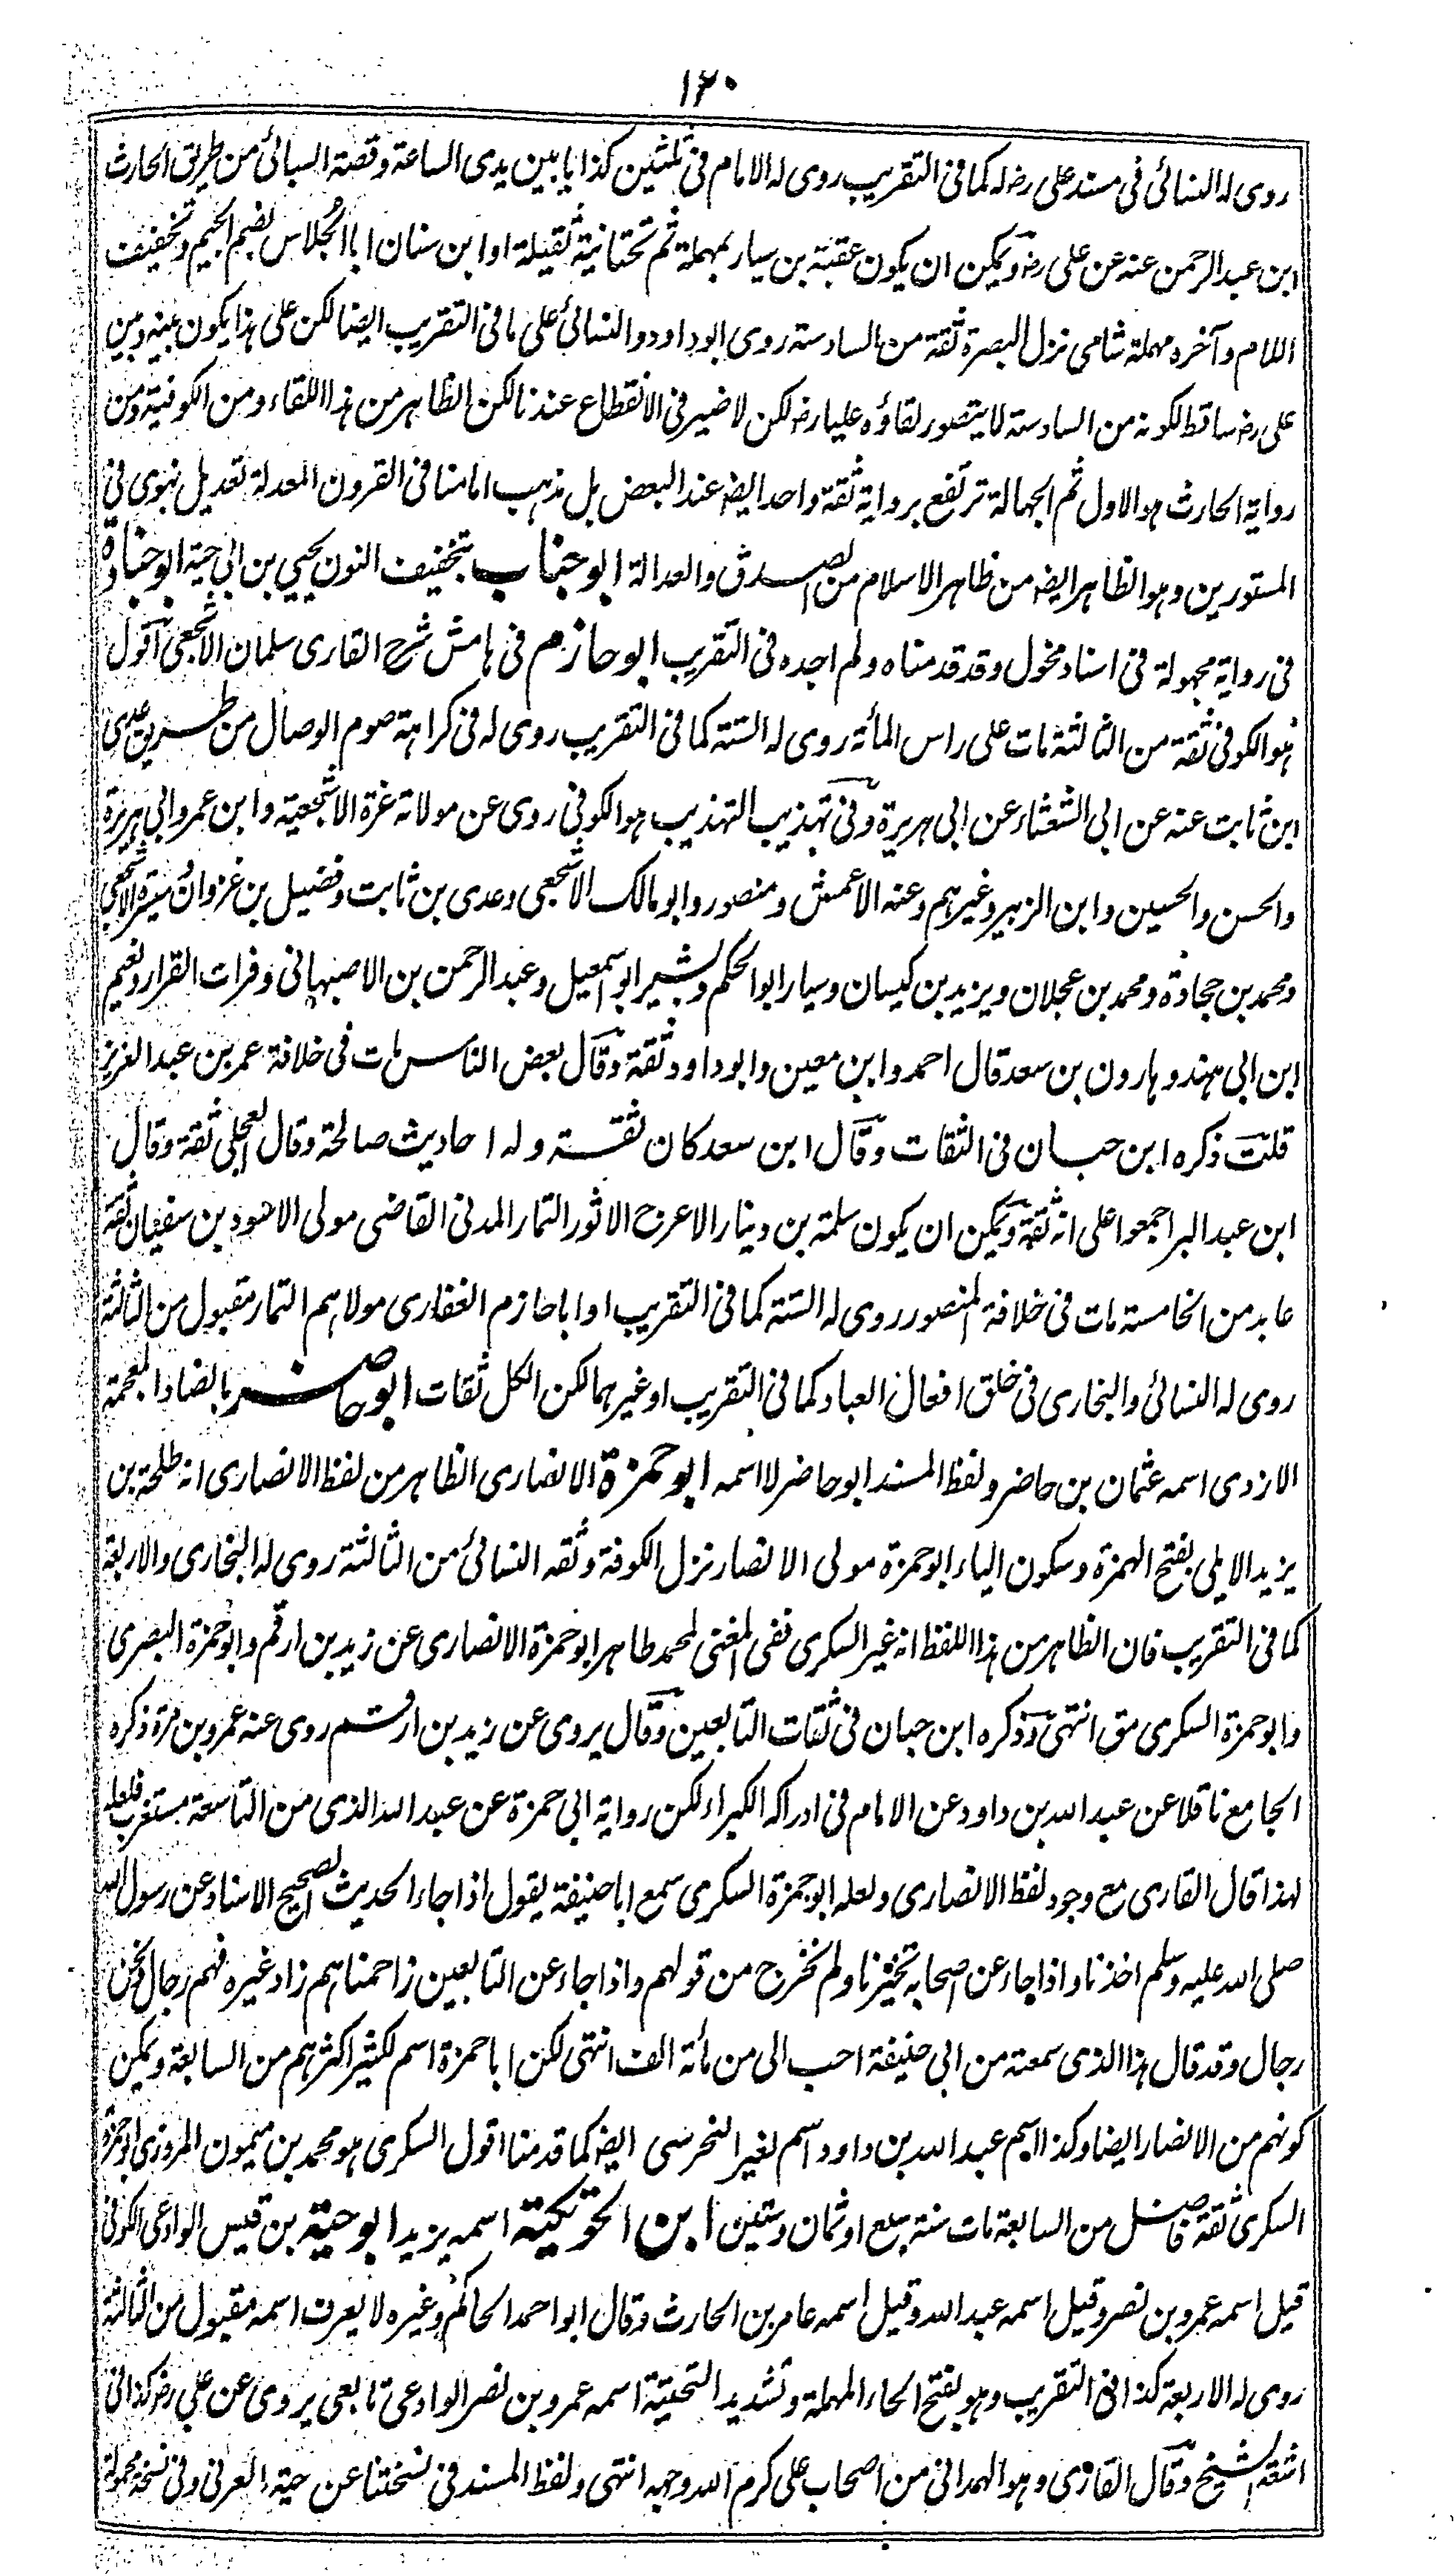 ۱۲۰
روی له النسائی فی مسند علی رضہ له کما فی التقریب روی له الامام فی ثلثین کذابا بین یدی الساعة وقصة السبائی من طریق الحارث
ابن عبد الرحمن عنه عن علی رضہ ویمکن ان یکون عقبة بن سیار بمهملة ثم تحتانیة ثقیلة او ابن سنان ابا الجُلاس بضم الجیم وتخفیف
اللام وآخره مهملة شامی نزل البصرة ثقة من السادسة روی ابو داود والنسائی علی ما فی التقریب ایضا لکن علی هذا یکون بینه وبین
علی رضہ ساقط لکونه من السادسة لا یتصور لقاؤه علیا رضہ لکن لا ضیر فی الانقطاع عندنا لکن الظاهر من هذا اللقاء ومن الکوفیة ومن
روایة الحارث هو الاول ثم الجهالة ترتفع بروایة ثقة واحد ایضہ عند البعض بل مذهب امامنا فی القرون المعدلة تعدیل نبوی فی
المستورین وهو الظاهر ایضہ من ظاهر الاسلام من الصدق والعدالة ابو جناب بتخفیف النون یحیی بن ابی حیة ابو جنادة
فی روایة مجهولة فی اسناد مخول وقد قدمناه ولم اجده فی التقریب ابو حازم فی هامش شرح القاری سلمان الاشجعی اقول
هو الکوفی ثقة من الثالثة مات علی راس المأة روی له الستة کما فی التقریب روی له فی کراهة صوم الوصال من طریق عدی
ابن ثابت عنه عن ابی الشعثاء عن ابی هریرة وفی تهذیب التهذیب هو الکوفی روی عن مولاته عزة الاشجعیة وابن عمر وابی هریرة
والحسن والحسین وابن الزبیر وغیرهم وعنه الاعمش ومنصور وابو مالک الاشجعی وعدی بن ثابت وفضیل بن غزوان ومیسرة الاشجعی
ومحمد بن جحادة ومحمد بن عجلان ویزید بن کیسان وسیار ابو الحکم وبشیر ابو اسمعیل وعبد الرحمن بن الاصبهانی وفرات القزاز ونعیم
ابن ابی هند وهارون بن سعد قال احمد وابن معین وابو داود ثقة وقال بعض الناس مات فی خلافة عمر بن عبد العزیز
قلت ذکره ابن حبان فی الثقات وقال ابن سعد کان ثقة وله احادیث صالحة وقال العجلی ثقة وقال
ابن عبد البر اجمعوا علی انه ثقة ویمکن ان یکون سلمة بن دینار الاعرج الاثور التمار المدنی القاضی مولی الاسود بن سفیان ثقة
عابد من الخامسة مات فی خلافة المنصور روی له الستة کما فی التقریب او ابا حازم الغفاری مولاهم التمار مقبول من الثالثة
روی له النسائی والبخاری فی خلق افعال العباد کما فی التقریب او غیرهما لکن الکل ثقات ابو حاضر بالضاد المعجمة
الازدی اسمه عثمان بن حاضر ولفظ المسند ابو حاضر لا اسمه ابو حمزة الانصاری الظاهر من لفظ الانصاری انه طلحة بن
یزید الایلی بفتح الهمزة وسکون الیاء ابو حمزة مولی الانصار نزل الکوفة وثقه النسائی من الثالثة روی له البخاری والاربعة
کما فی التقریب فان الظاهر من هذا اللفظ انه غیر السکری ففی المغنی لمحمد طاهر ابو حمزة الانصاری عن زید بن ارقم وابو حمزة البصری
وابو حمزة السکری مق انتهی وذکره ابن حبان فی ثقات التابعین وقال یروی عن زید بن ارقم روی عنه عمرو بن مرة ذکره
الجامع ناقلا عن عبد الله بن داود عن الامام فی ادراکه الکبراء لکن روایة ابی حمزة عن عبد الله الذی من التاسعة مستغرب فلعله
لهذا قال القاری مع وجود لفظ الانصاری ولعله ابو حمزة السکری سمع ابا حنیفة یقول اذا جاء الحدیث الصحیح الاسناد عن رسول الله
صلی الله علیه وسلم اخذنا واذا جاء عن اصحابه تخیرنا ولم نخرج من قولهم واذا جاء عن التابعین زاحمناهم زاد غیره فهم رجال ونحن
رجال وقد قال هذا الذی سمعته من ابی حنیفة احب الی من مأة الف انتهی لکن ابا حمزة اسم لکثیر اکثرهم من السابعة ویمکن
کونهم من الانصار ایضا وکذا اسم عبد الله بن داود اسم لغیر الخرسی ایضہ کما قدمنا اقول السکری هو محمد بن میمون المروزی ابو حمزة
السکری ثقة فاضل من السابعة مات سنة سبع او ثمان وستین ابن الحوتکیة اسمه یزید ابو حیة بن قیس الوادعی الکوفی
قیل اسمه عمرو بن نصر وقیل اسمه عبد الله وقیل اسمه عامر بن الحارث وقال ابو احمد الحاکم وغیره لا یعرف اسمه مقبول من الثالثة
روی له الاربعة کذا فی التقریب وهو بفتح الحاء المهملة وتشدید التحتیة اسمه عمرو بن نصر الوادعی تابعی یروی عن علی رضہ کذا فی
اشعة الشیخ وقال القاری وهو الهمدانی من اصحاب علی کرم الله وجهه انتهی ولفظ المسند فی نسختنا عن حیة العرنی وفی نسخة مجهولة